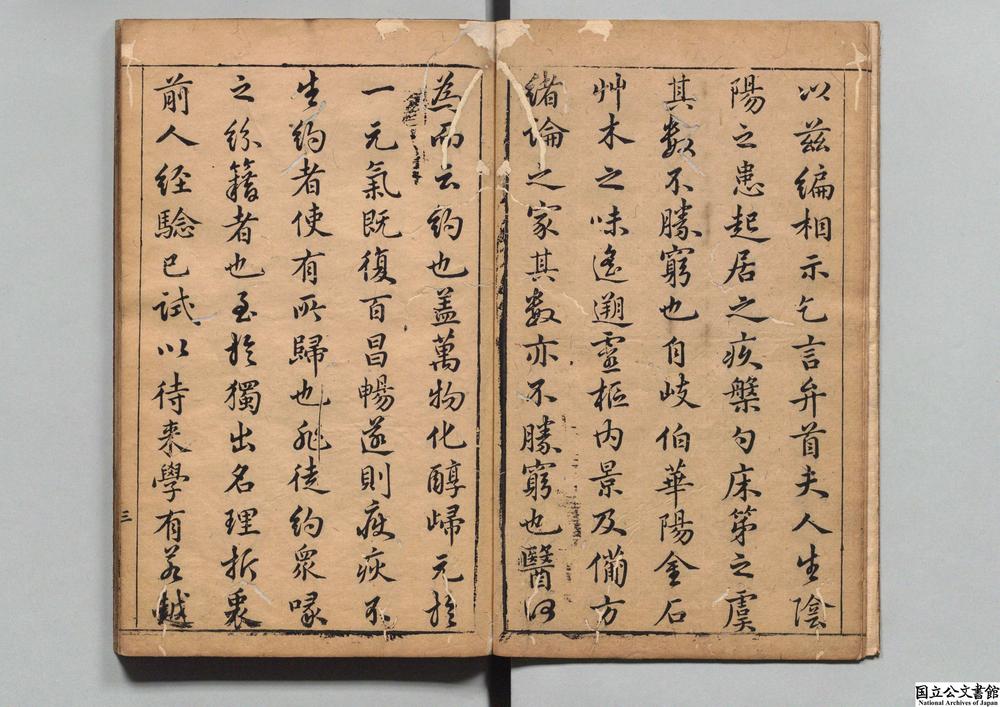 以茲編相示乞言弁首夫人生陰
陽之患起居之疾槃勺床笫之虞
其數不勝窮也自岐伯華陽金石
艸木之味遙遡靈樞內景及備方
緒論之家其數亦不勝窮也醫何
為而云約也蓋萬物化醇歸元於
一元氣既復百昌暢遂則疵疾不
生約者使有所歸也非徒約眾喙
之綜籍者也至於獨出名理折衷
前人經驗已試以待來學有若越
三
国立公文書館
National Archives of Japan